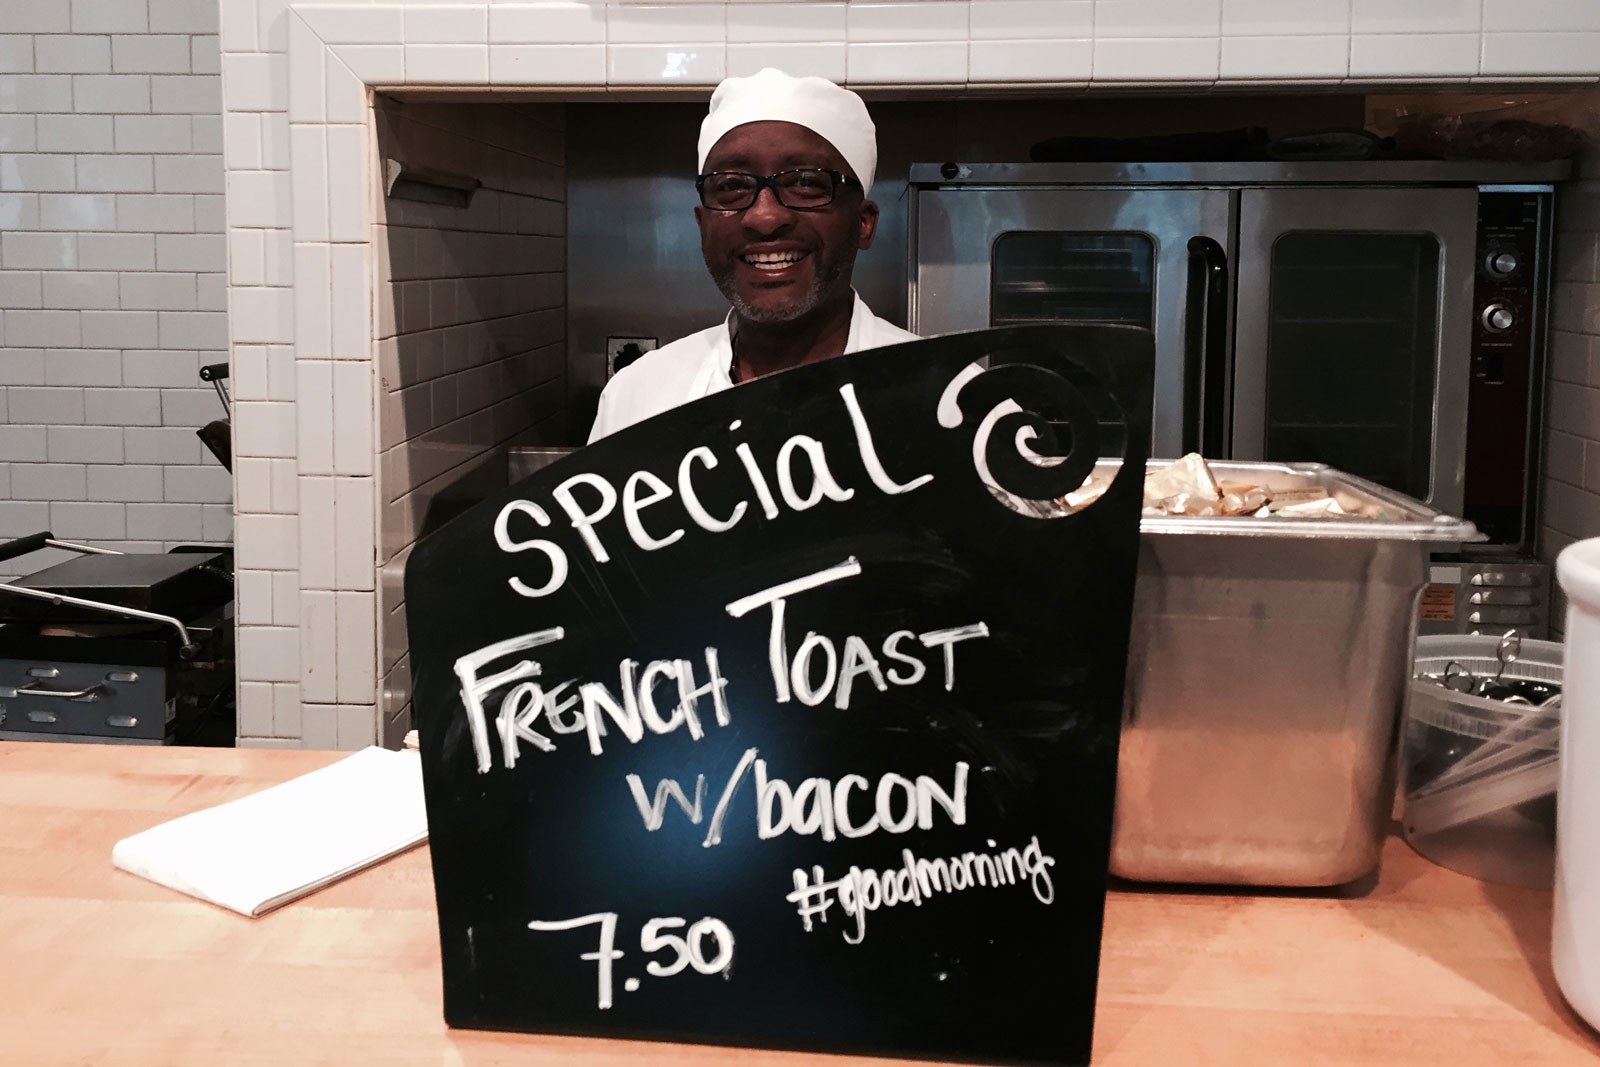 special
FRENCH TOAST
w/bacon
#goodmorning
7.50